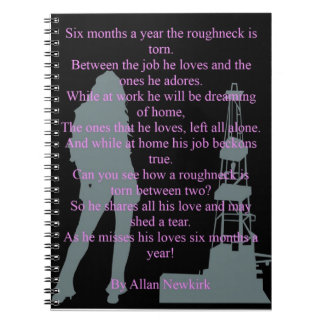 Six months a year the roughneck is
torn.
Between the job he loves and the
ones he adores.
While at work he will be dreaming
of home,
The ones that he loves, left all alone.
And while at home his job beckons
true.
Can you see how a roughneck is
torn between two?
So he shares all his love and may
shed a tear.
As he misses his loves six months a
year!
By Allan Newkirk